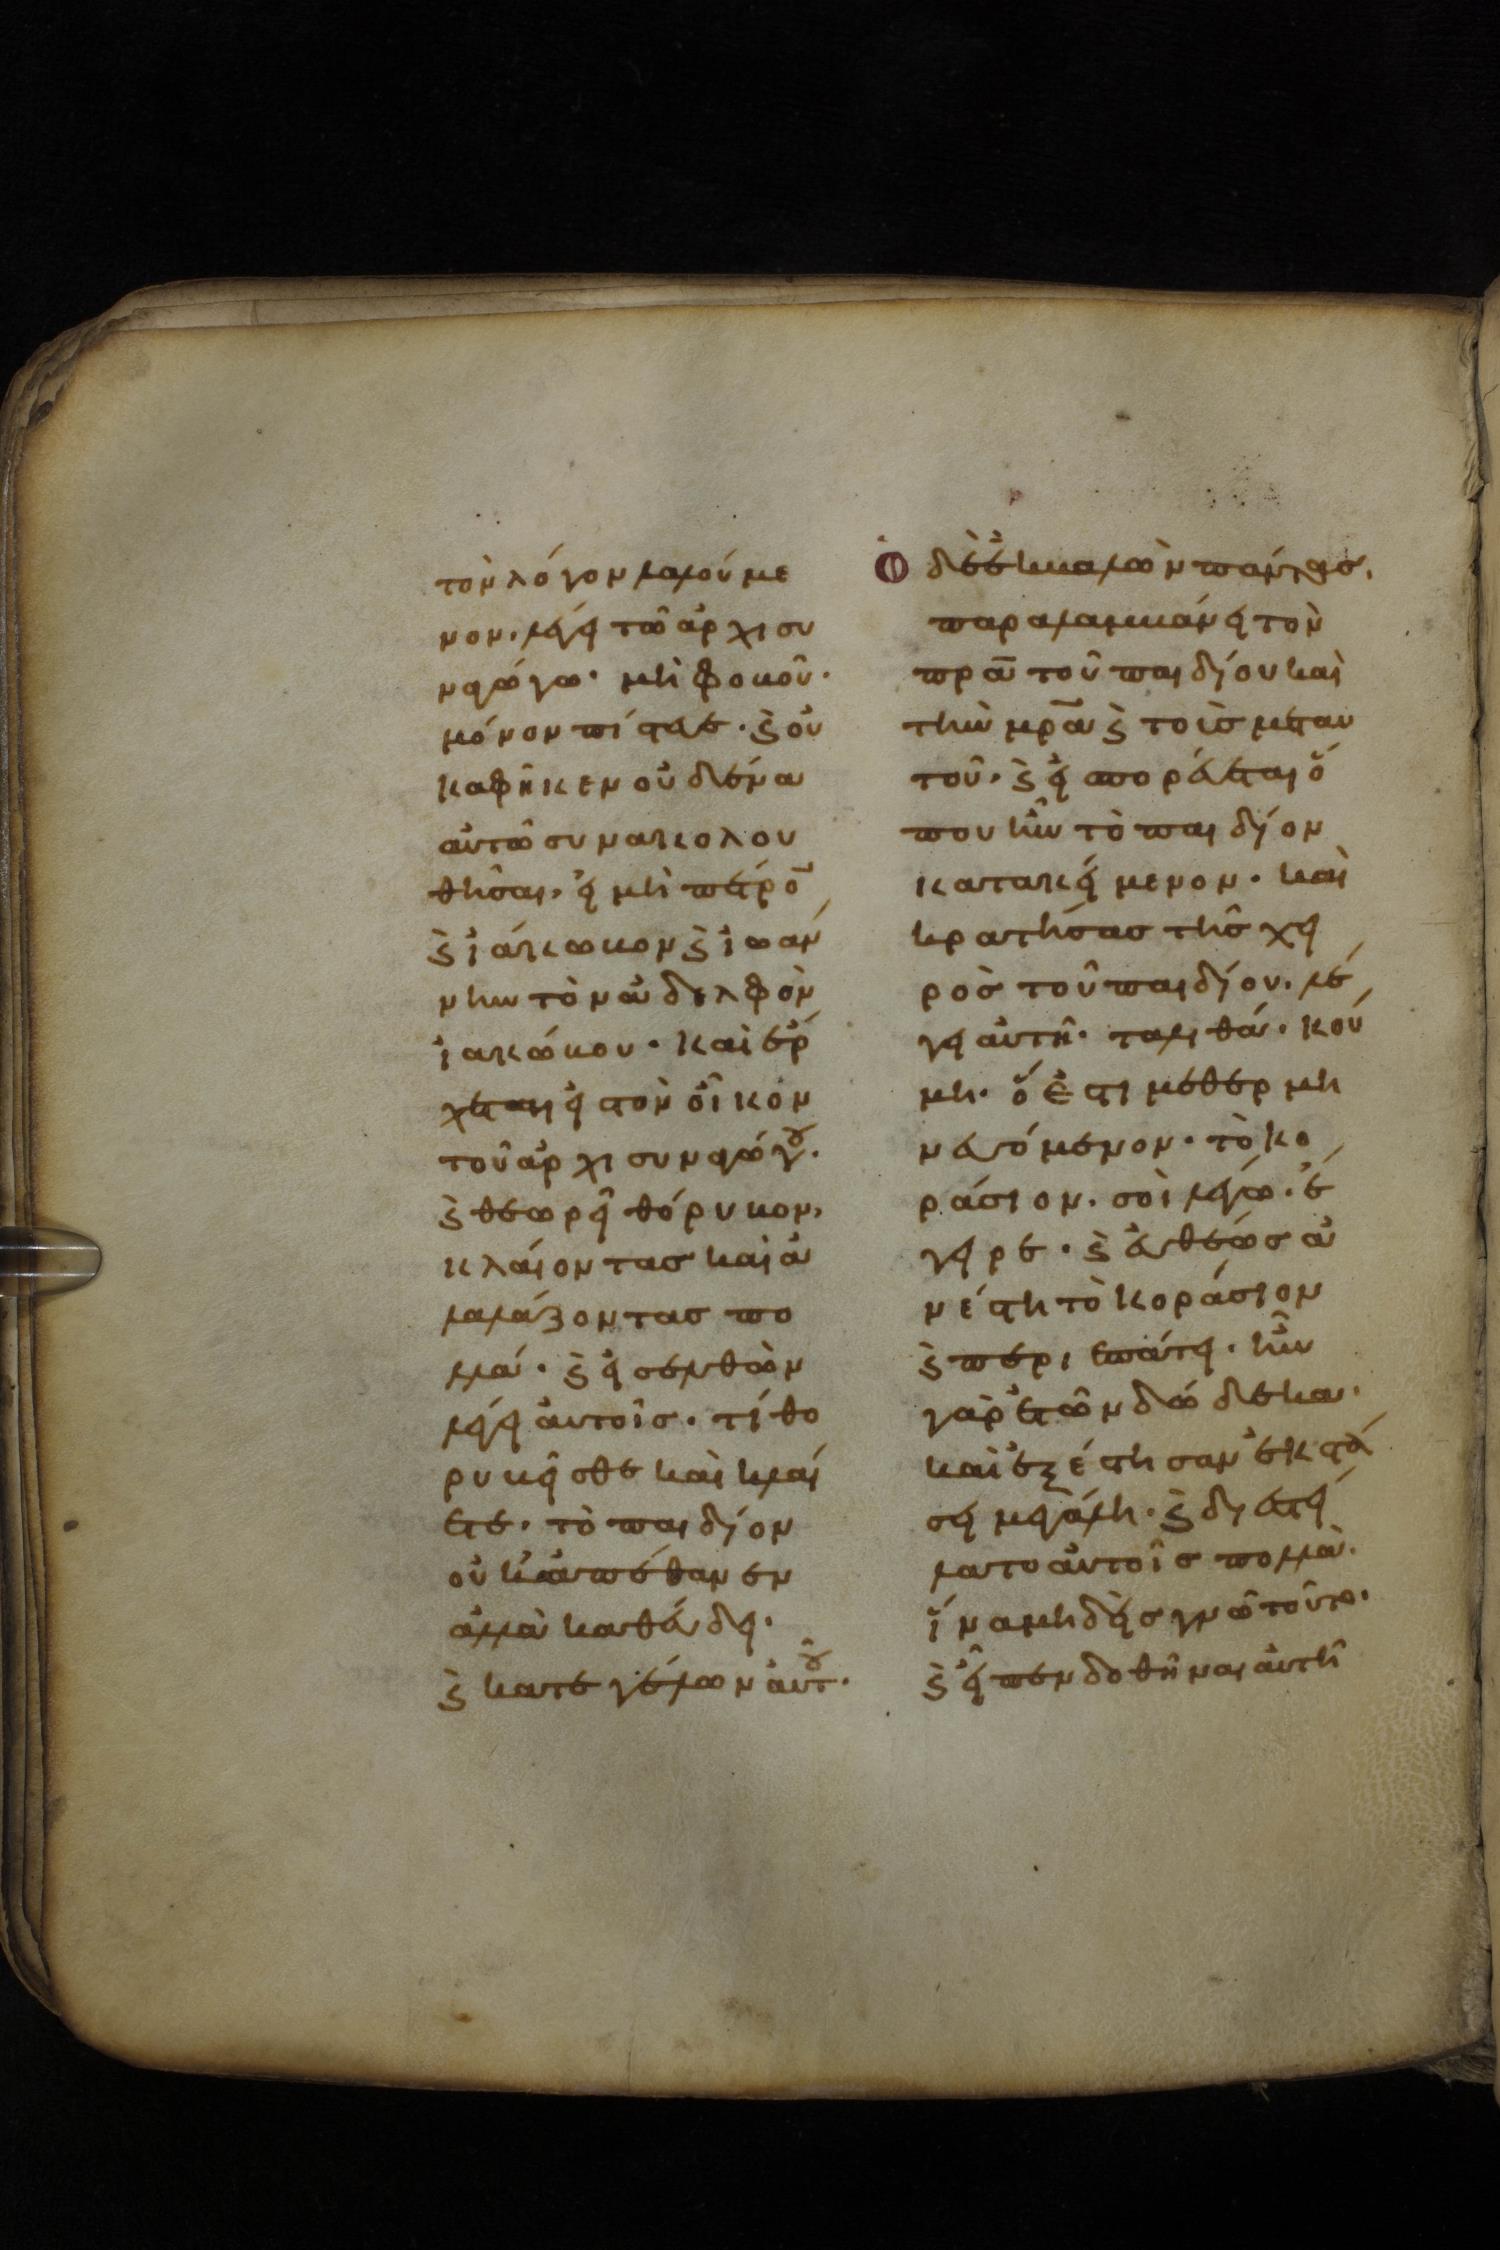 τὸν λόγον λαλούμε
νον. λέγει τῶ ἀρχισυ
ναγώγω· μὴ φοβοῦ·
μόνον πίστευε· ϗ οὐ
κ ἀφῆκεν οὐδένα
αὐτῶ συνακολου
θῆσαι, εἰ μὴ πέτρο̅
ϗ ἰάκωβον ϗ ἰωάν
νην τὸν ἀδελφὸν
ἰακώβου· καὶ ἔρ
χεται εἰς τὸν οἶκον
τοῦ ἀρχισυναγώγου·
ϗ θεωρεῖ θόρυβον,
κλαίοντας καὶ ἀ
λαλάζοντας πο
λλά· ϗ εἰσελθὼν
λέγει αὐτοῖς· τί θο
ρυβεῖσθε καὶ κλαί
ετε· τὸ παιδίον
οὐκ ἀπέθανεν
ἀλλὰ καθεύδει·
ϗ κατεγέλων αὐτοῦ·
Ὁ δὲ ἐκβαλὼν πάντας,
παραλαμβάνει τὸν
πρα̅ τοῦ παιδίου καὶ
τὴν μρα̅ ϗ τοὺς μετ αυ
τοῦ· ϗ εἰσπορεύεται ὅ
που ἦν τὸ παιδίον
κατακείμενον· καὶ
κρατήσας τῆς χει
ρὸς τοῦ παιδίου, λέ
γει αὐτῆ· ταλιθά· κού
μι· ὅ ἐστι μεθερμη
νευόμενον· τὸ κο
ράσιον· σοὶ λέγω· ἔ
γειρε· ϗ εὐθέως ἀ
νέστη τὸ κοράσιον
ϗ περιεπάτει· ἦν
γὰρ ἐτῶν δώδεκα·
καὶ ἐξέστησαν ἐκστά
σει μεγάλη· ϗ διεστεί
λατο αὐτοῖς πολλὰ·
ἵνα μηδεὶς γνῶ τοῦτο·
ϗ εἶπεν δοθῆναι αὐτῆ